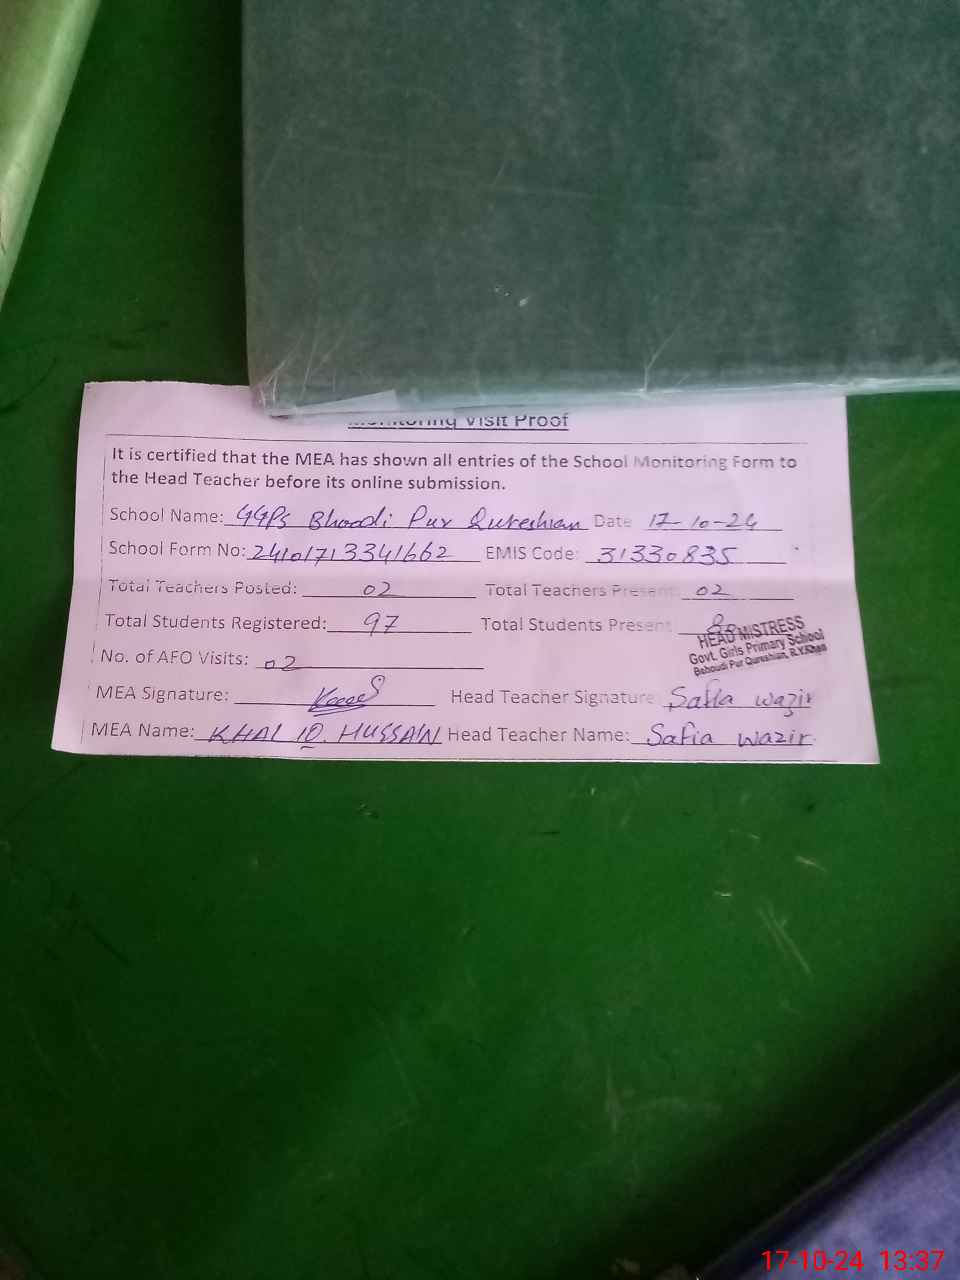 Monitoring Visit Proof
It is certified that the MEA has shown all entries of the School Monitoring Form to
the Head Teacher before its online submission.
School Name: GGPS Bhoodi Pur Qureshian Date 17-10-24
School Form No: 24101713341662 EMIS Code: 31330835
Total Teachers Posted: 02 Total Teachers Present: 02
Total Students Registered: 97 Total Students Present
HEAD MISTRESS
Govt. Girls Primary School
Behoudi Pur Qureshian, R.Y.Khan
No. of AFO Visits: 02
MEA Signature: Head Teacher Signature: Safia wazir
MEA Name: KHALID HUSSAIN Head Teacher Name: Safia wazir
17-10-24 13:37